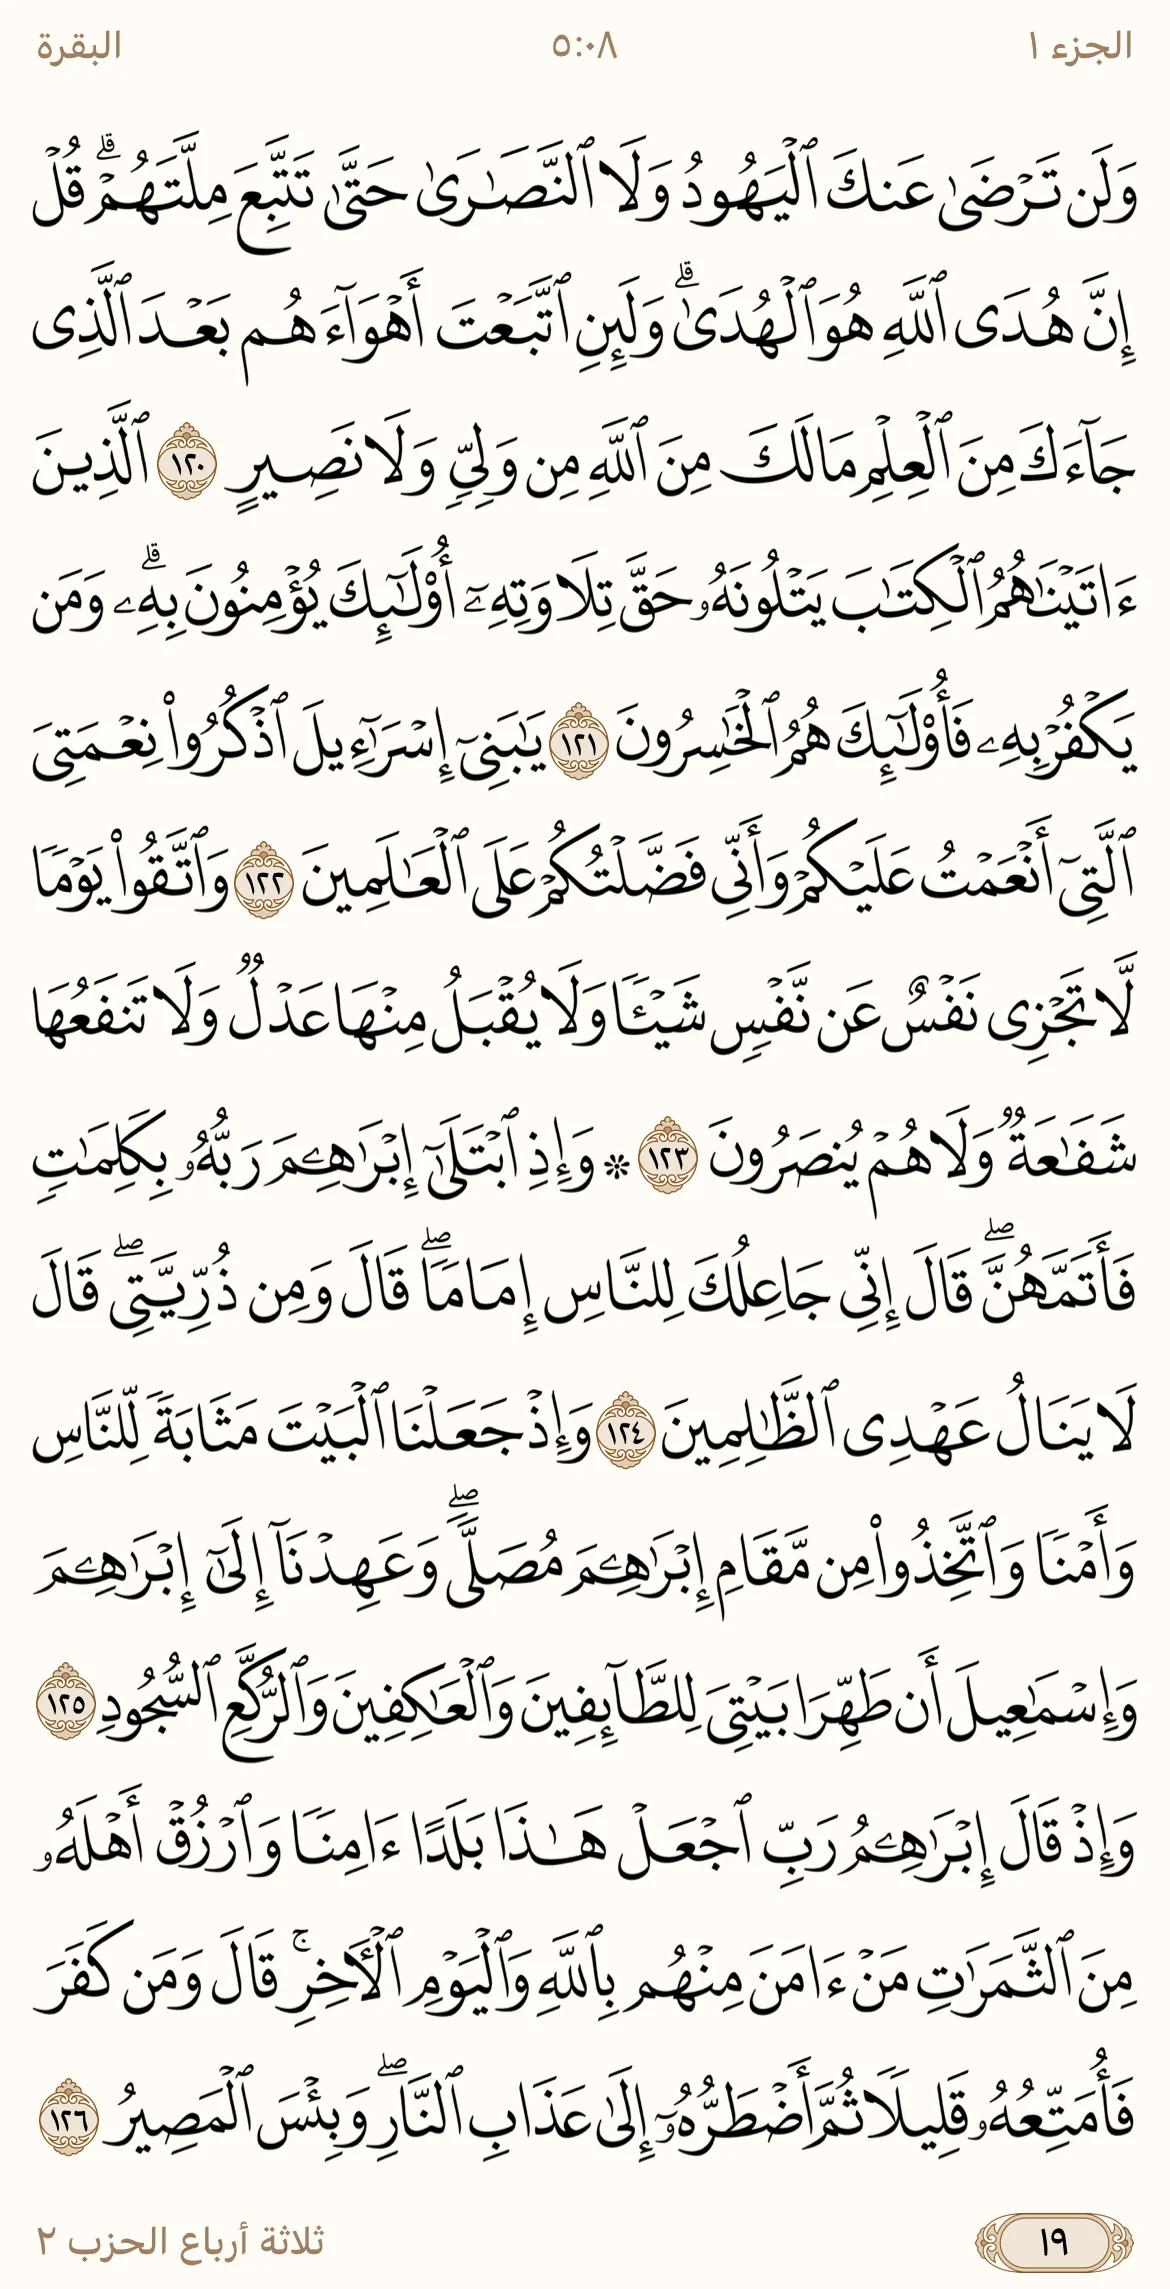 الجزء ١
٥:٠٨
البقرة
وَلَن تَرۡضَىٰ عَنكَ ٱلۡيَهُودُ وَلَا ٱلنَّصَٰرَىٰ حَتَّىٰ تَتَّبِعَ مِلَّتَهُمۡۗ قُلۡ
إِنَّ هُدَى ٱللَّهِ هُوَ ٱلۡهُدَىٰۗ وَلَئِنِ ٱتَّبَعۡتَ أَهۡوَآءَهُم بَعۡدَ ٱلَّذِي
جَآءَكَ مِنَ ٱلۡعِلۡمِ مَا لَكَ مِنَ ٱللَّهِ مِن وَلِيّٖ وَلَا نَصِيرٍ ١٢٠ ٱلَّذِينَ
ءَاتَيۡنَٰهُمُ ٱلۡكِتَٰبَ يَتۡلُونَهُۥ حَقَّ تِلَاوَتِهِۦٓ أُوْلَٰٓئِكَ يُؤۡمِنُونَ بِهِۦۗ وَمَن
يَكۡفُرۡ بِهِۦ فَأُوْلَٰٓئِكَ هُمُ ٱلۡخَٰسِرُونَ ١٢١ يَٰبَنِيٓ إِسۡرَٰٓءِيلَ ٱذۡكُرُواْ نِعۡمَتِيَ
ٱلَّتِيٓ أَنۡعَمۡتُ عَلَيۡكُمۡ وَأَنِّي فَضَّلۡتُكُمۡ عَلَى ٱلۡعَٰلَمِينَ ١٢٢ وَٱتَّقُواْ يَوۡمٗا
لَّا تَجۡزِي نَفۡسٌ عَن نَّفۡسٖ شَيۡـٔٗا وَلَا يُقۡبَلُ مِنۡهَا عَدۡلٞ وَلَا تَنفَعُهَا
شَفَٰعَةٞ وَلَا هُمۡ يُنصَرُونَ ١٢٣ ۞ وَإِذِ ٱبۡتَلَىٰٓ إِبۡرَٰهِـۧمَ رَبُّهُۥ بِكَلِمَٰتٖ
فَأَتَمَّهُنَّۖ قَالَ إِنِّي جَاعِلُكَ لِلنَّاسِ إِمَامٗاۖ قَالَ وَمِن ذُرِّيَّتِيۖ قَالَ
لَا يَنَالُ عَهۡدِي ٱلظَّٰلِمِينَ ١٢٤ وَإِذۡ جَعَلۡنَا ٱلۡبَيۡتَ مَثَابَةٗ لِّلنَّاسِ
وَأَمۡنٗا وَٱتَّخِذُواْ مِن مَّقَامِ إِبۡرَٰهِـۧمَ مُصَلّٗىۖ وَعَهِدۡنَآ إِلَىٰٓ إِبۡرَٰهِـۧمَ
وَإِسۡمَٰعِيلَ أَن طَهِّرَا بَيۡتِيَ لِلطَّآئِفِينَ وَٱلۡعَٰكِفِينَ وَٱلرُّكَّعِ ٱلسُّجُودِ ١٢٥
وَإِذۡ قَالَ إِبۡرَٰهِـۧمُ رَبِّ ٱجۡعَلۡ هَٰذَا بَلَدًا ءَامِنٗا وَٱرۡزُقۡ أَهۡلَهُۥ
مِنَ ٱلثَّمَرَٰتِ مَنۡ ءَامَنَ مِنۡهُم بِٱللَّهِ وَٱلۡيَوۡمِ ٱلۡأٓخِرِۚ قَالَ وَمَن كَفَرَ
فَأُمَتِّعُهُۥ قَلِيلٗا ثُمَّ أَضۡطَرُّهُۥٓ إِلَىٰ عَذَابِ ٱلنَّارِۖ وَبِئۡسَ ٱلۡمَصِيرُ ١٢٦
١٩
ثلاثة أرباع الحزب ٢